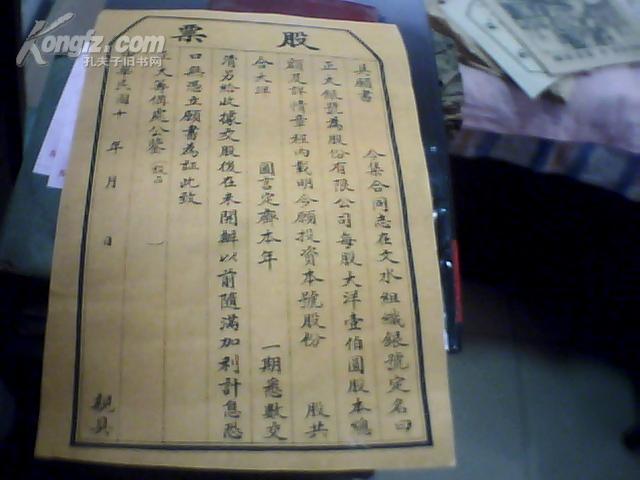 股票
具願書 今集合同志在文水組織銀號定名曰
正大銀號為股份有限公司每股大洋壹伯圓股本總
額及詳情章程內載明今願投資本號股份 股共
合大洋 圓言定齊本年 一期悉數交
清另給收據交股後在未開辦以前隨滿加利計息恐
口無憑立願書為証此致
正大籌備處公鑒
華民國十 年 月 日 親具
Kongfz.com
孔夫子旧书网